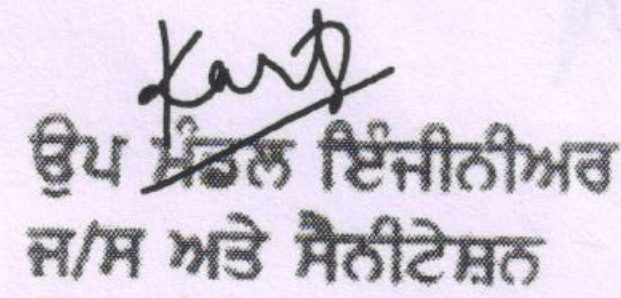 ਉਪ ਮੰਡਲ ਇੰਜੀਨੀਅਰ
ਜ/ਸ ਅਤੇ ਸੈਨੀਟੇਸ਼ਨ